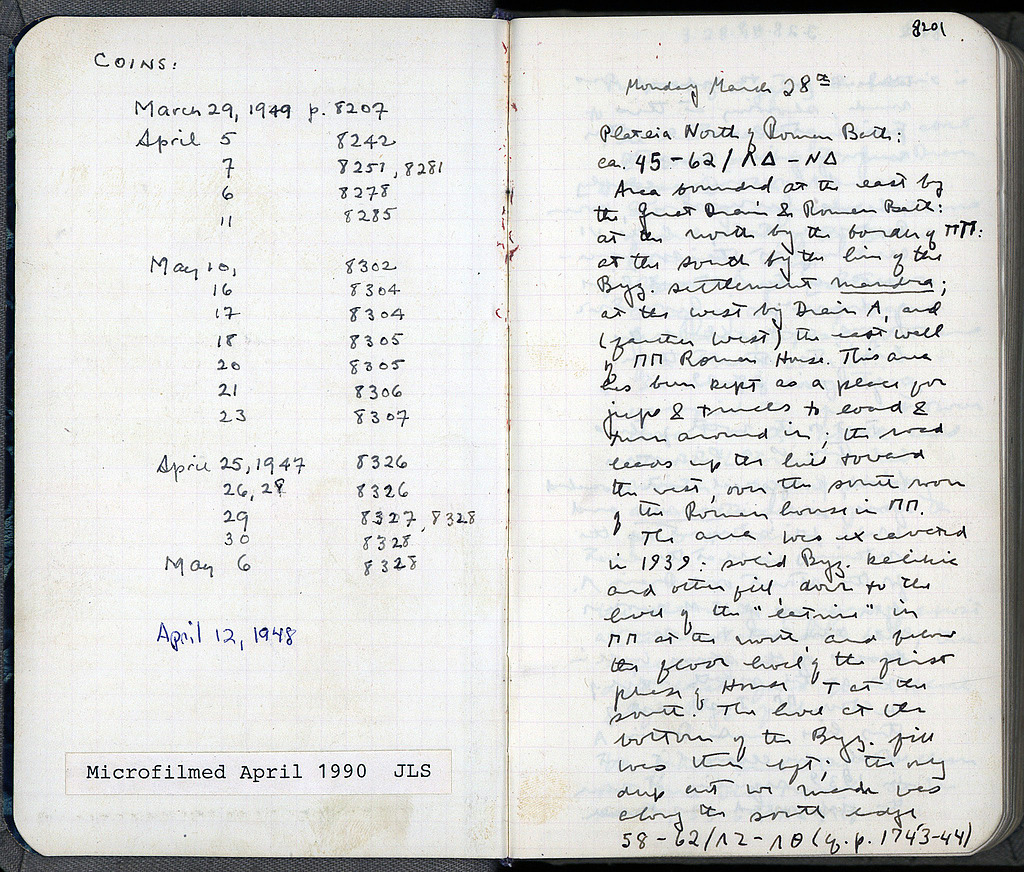 COINS:
March 29, 1949 p. 8207
April 5 8242
7 8251, 8281
6 8278
11 8285
May 10, 8302
16 8304
17 8304
18 8305
20 8305
21 8306
23 8307
April 25, 1947 8326
26, 28 8326
29 8327, 8328
30 8328
May 6 8328
April 12, 1948
Microfilmed April 1990 JLS
8201
Monday March 28th
Plateia North of Roman Bath:
ca. 45-62/ΛΔ-ΝΔ
Area bounded at the east by
the Great Drain & Roman Bath:
at the north by the border of ΠΠ:
at the south by the line of the
Byz. settlement mandra;
at the west by Drain A, and
(farther west) the east wall
of ΠΠ Roman House. This area
has been kept as a place for
jeeps & trucks to load &
turn around in; the road
leads up the hill toward
the west, over the south room
of the Roman house in ΠΠ.
The area was excavated
in 1939: solid Byz.
and other fill, down to the
level of the "latrine" in
ΠΠ at the north and below
the floor level of the first
phase of House T at the
south. The level at the
bottom of the Byz. fill
was then kept; the only
deep cut we made was
along the south edge,
58-62/ΛΖ-ΛΘ (cf. p. 1743-44)